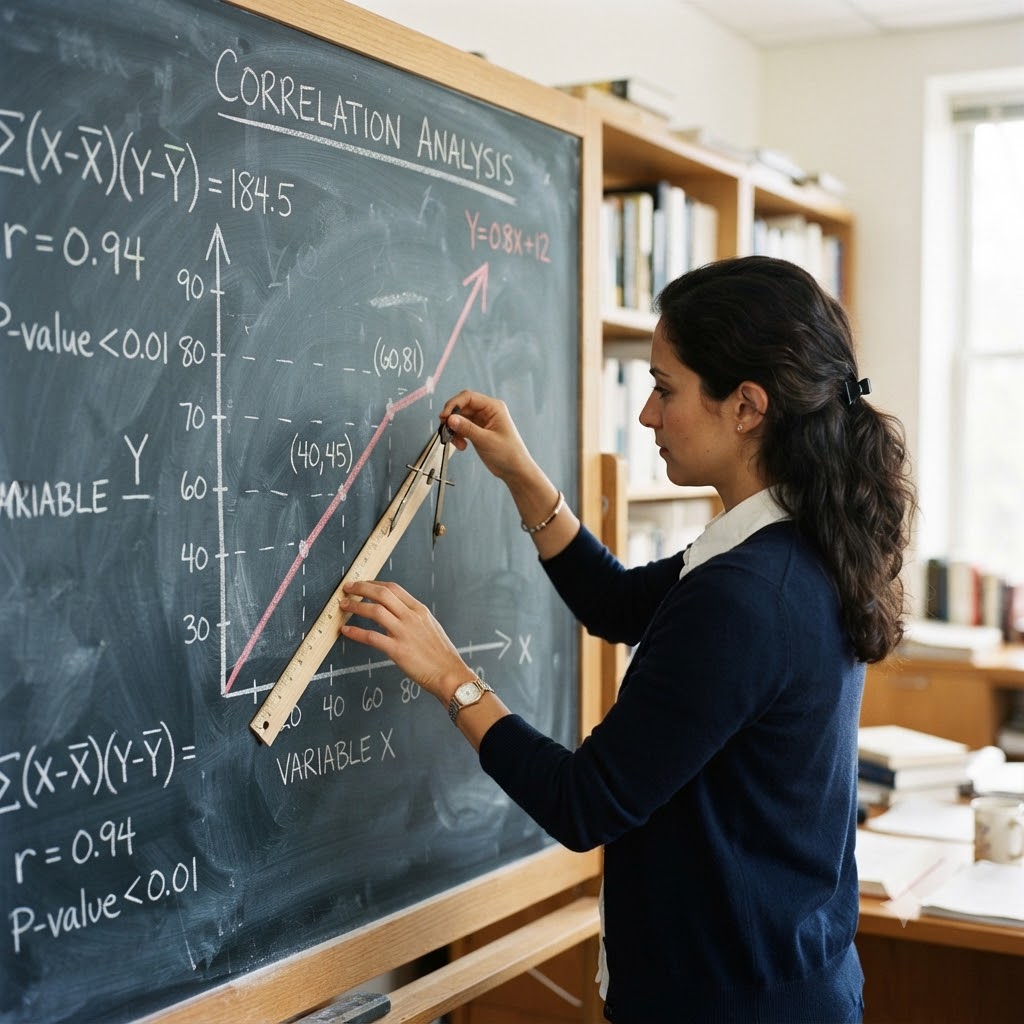 CORRELATION ANALYSIS
∑(X-X̅)(Y-Y̅) = 184.5
r = 0.94
P-value < 0.01
Y=0.8X+12
90
80
(60,81)
70
(40,45)
60
40
30
Y
X
40 60 80
VARIABLE X
∑(X-X̅)(Y-Y̅) =
r = 0.94
P-value < 0.01